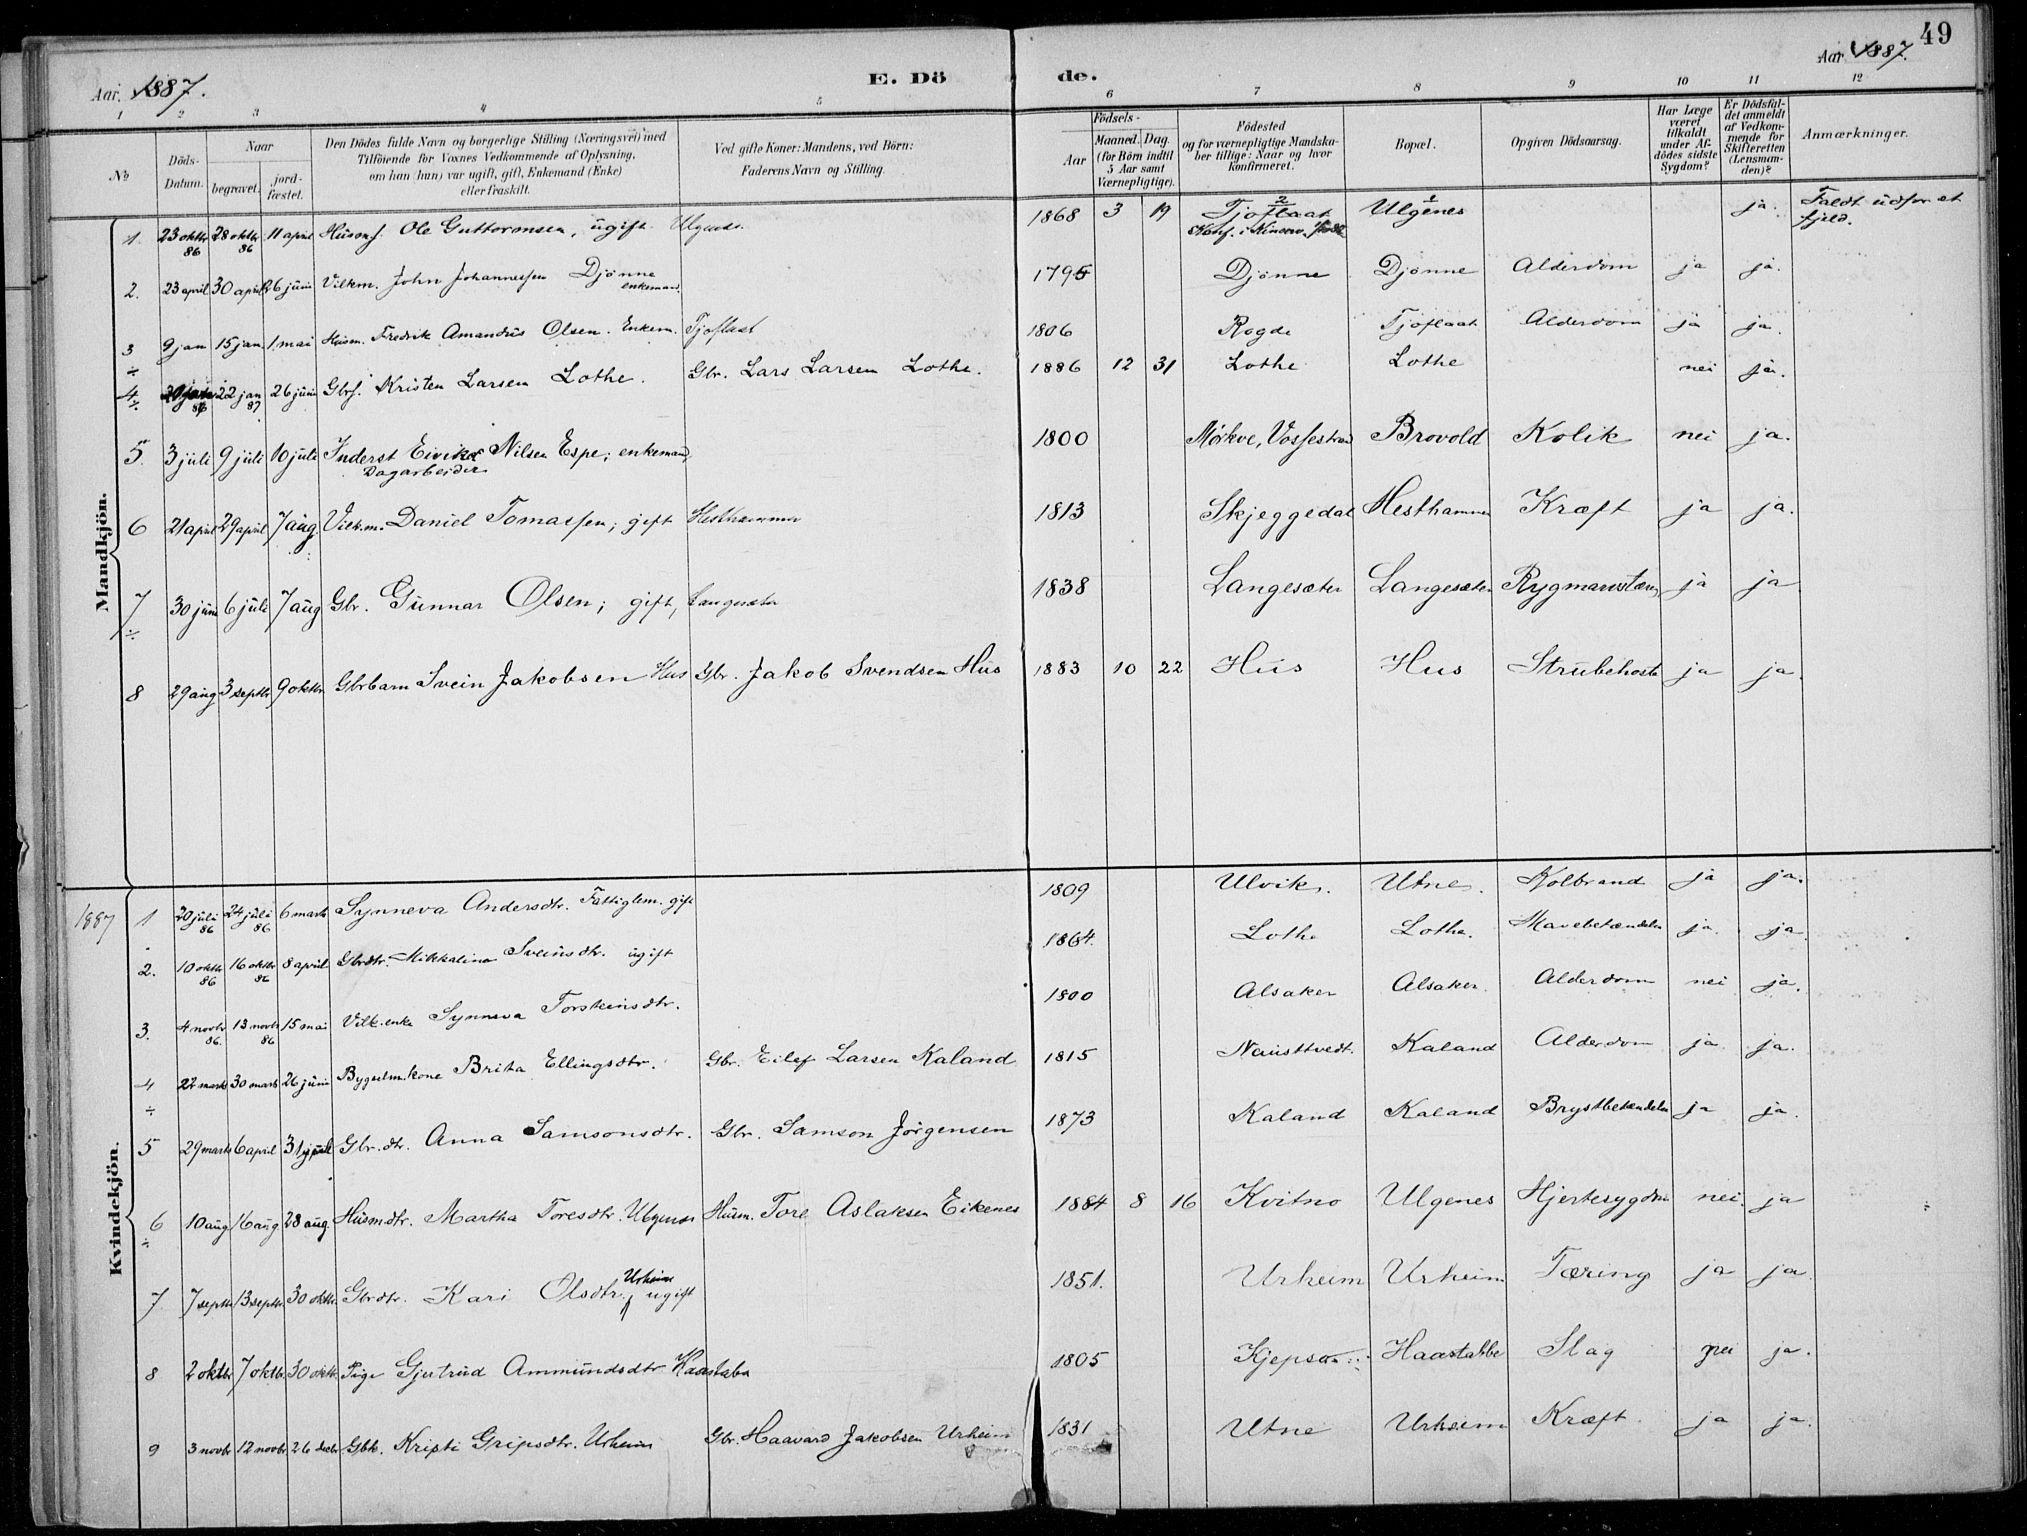 49
Aar 1887.
E. Döde.
Aar 1887.
1 2 3 4 5 6 7 8 9 10 11 12
No
Döds-Datum.
Naar
begravet.
jord-fæstet.
Den Dödes fulde Navn og borgerlige Stilling (Næringsvei) med
Tilföiende for Voxnes Vedkommende af Oplysning,
om han (hun) var ugift, gift, Enkemand (Enke)
eller fraskilt.
Ved gifte Koner: Mandens, ved Börn:
Faderens Navn og Stilling.
Födsels-
Aar
Maaned.
Dag.
(for Börn indtil
5 Aar samt
Værnepligtige).
Födested
og for værnepligtige Mandska-
ber tillige: Naar og hvor
konfirmeret.
Bopæl.
Opgiven Dödsaarsag.
Har Læge
været
tilkaldt
under Af-
dödes sidste
Sygdom?
Er Dödsfal-
det anmeldt
af Vedkom-
mende for
Skifteretten
(Lensman-
den)?
Anmærkninger.
Mandkjön.
1. 23 oktbr 86 28 oktbr 86 11 april Husmf. Ole Guttormsen, ugift. Ulgenes. 1868 3 19 Tjoflaat Ulgenes ja. Faldt udfor et
fjeld.
2. 23 april 30 april 26 juni Vilkm. John Johannessen Djönne enkemand. 1795 Djönne Djönne Alderdom ja ja.
3 9 jan 15 jan. 1 mai Husm. Fredrik Amandus Olsen. Enkem. Tjoflaat 1806 Rogde Tjoflaat Alderdom ja ja.
4 22 jan 87 26 juni Gbrf. Kristen Larsen Lothe. Gbr. Lars Larsen Lothe. 1886 12 31 Lothe Lothe nei ja.
5. 3 juli 9 juli 10 juli Inderst Eirik Nilsen Espe; enkemand,
Dagarbeider
1800 Mörkve, Vossestrand Brovold Kolik nei ja.
6 21 april 29 april 7 aug. Vilkm. Daniel Tomassen; gift Hesthammer 1813 Skjeggedal Hesthammer Kræft ja ja.
7 30 juni 6 juli 7 aug Gbr. Gunnar Olsen; gift, Langesæter 1838 Langesæter Langesæter Rygmarvstæring ja ja
8 29 aug 3 septbr 9 oktbr Gbrbarn Svein Jakobsen Hus Gbr. Jakob Svendsen Hus 1883 10 22 Hus Hus Strubehoste ja ja.
Kvindekjön.
1887 1 20 juli 86 24 juli 86 6 marts Synneva Andersdtr. Fattiglem. gift 1809 Ulvik. Utne. Kolbrand ja ja.
2. 10 oktbr 86 16 oktbr 86 8 april Gbrdtr. Mikkaline Sveinsdtr. ugift 1864. Lothe Lothe. Mavebetændelse ja. ja
3. 4 novbr 86. 13 novbr 86 15 mai Vilk.enke Synneva Torsteinsdtr. 1800 Alsaker Alsaker Alderdom nei ja.
4 22 marts 30 marts 26 juni Bygselm.kone Brita Ellingsdtr. Gbr. Eilef Larsen Kaland 1815 Nausttvedt. Kaland Alderdom ja ja.
5 29 marts 6 april 31 juli Gbr.dtr. Anna Samsonsdtr. Gbr. Samson Jörgensen 1873 Kaland Kaland Brystbetændelse ja ja.
6 10 aug 16 aug 28 aug. Husmdtr. Martha Toresdtr. Ulgenes Husm. Tore Aslaksen Eikenes 1884 8 16 Kvitno Ulgenes Hjertesygdom nei ja
7 7 septbr 13 septbr 30 oktbr. Gbrdtr. Kari Olsdtr. Urheim ugift 1851. Urheim Urheim Tæring ja ja.
8 2 oktbr 7 oktbr. 30 oktbr Pige Gjertrud Ammundsdtr Haastabø 1805 Kjepsø Haastabbe Slag nei ja.
9 3 novbr 12 novbr 26 decbr Gbk. Kristi Gripsdtr. Urheim Gbr. Haavard Jakobsen Urheim 1831 Utne Urheim Kræft. ja ja.